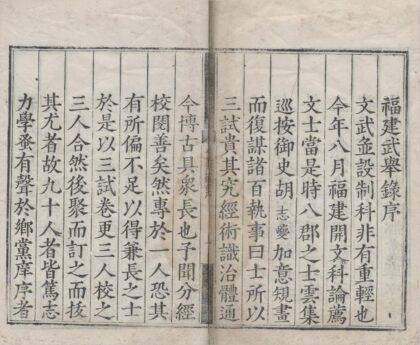 福建武舉錄序
文武並設制科非有重輕也
今年八月福建開文科論薦
文士當是時八郡之士雲集
巡按御史胡志夔加意規畫
而復謀諸百執事曰士所以
三試貴其究經術識治體通
今博古具衆長也予聞分經
校閱善矣然專於一人恐其
有所偏不足以得兼長之士
於是以三試卷更三人校之
三人合然後聚而訂之而拔
其尤者故九十人者皆篤志
力學蚤有聲於鄉黨庠序者